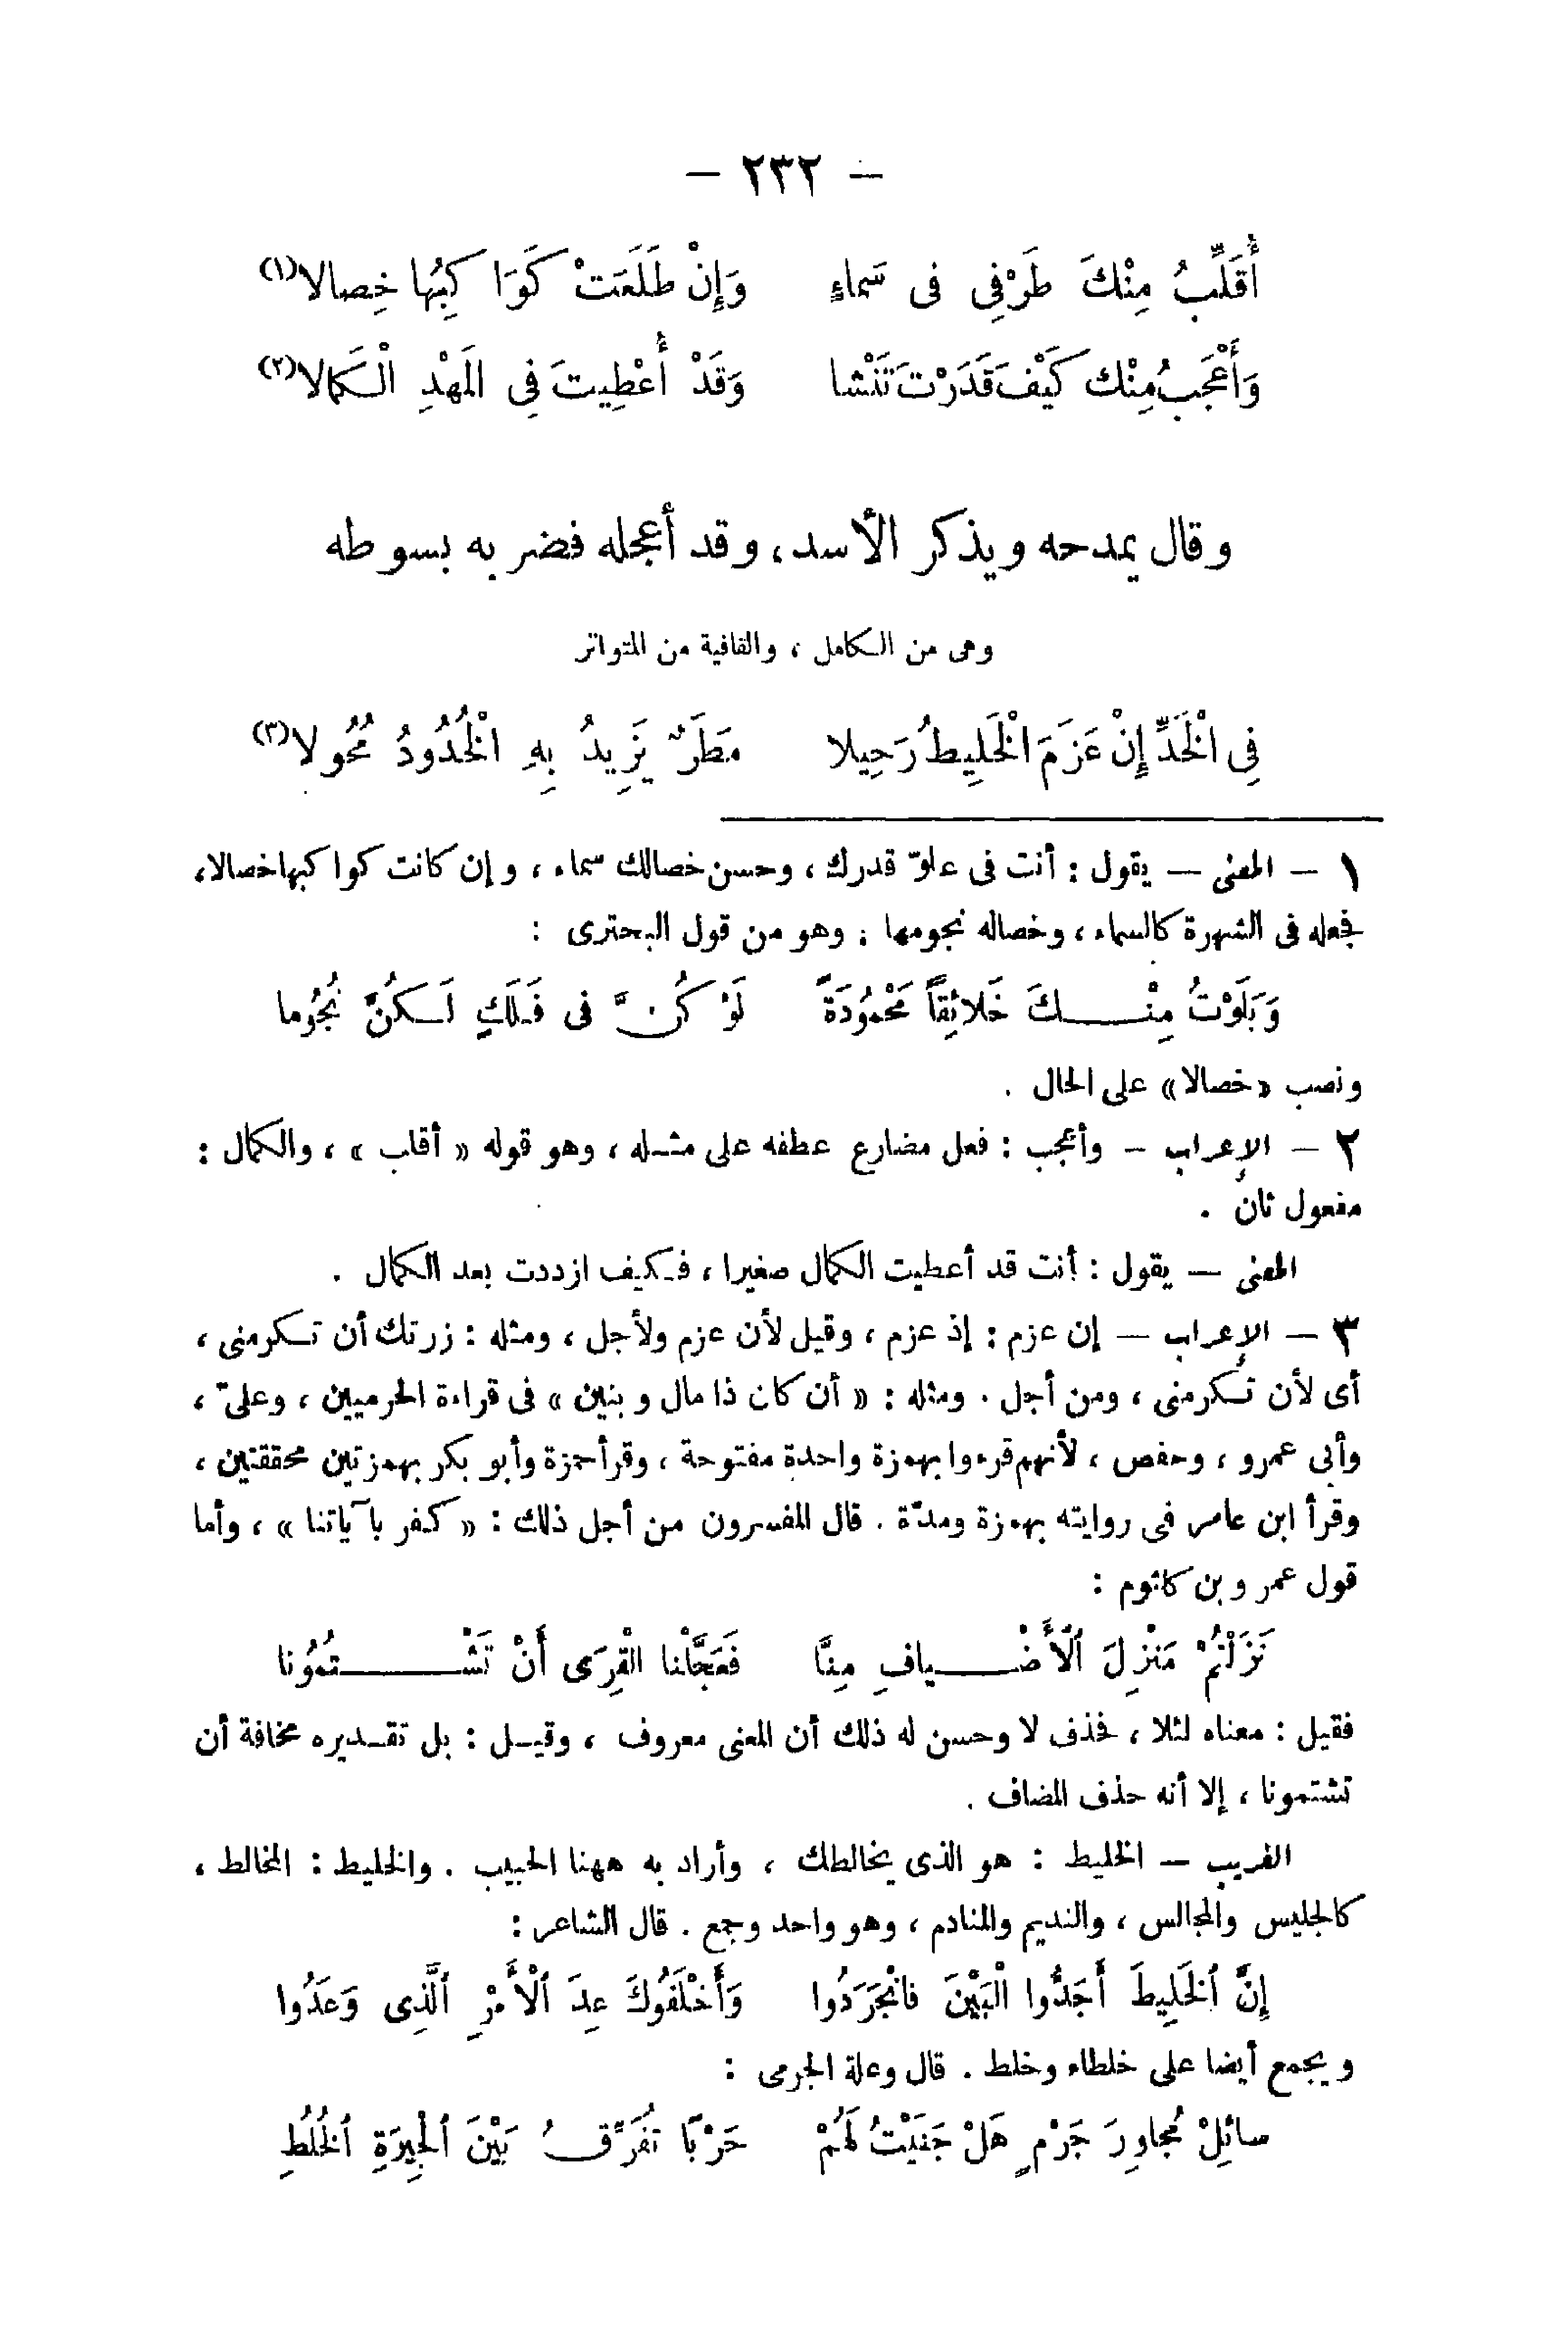 – ٢٣٢ –
أُقَلِّبُ مِنْكَ طَرْفِي فى سَماءٍ وَإِنْ طَلَعَتْ كَوَاكِبُها خِصالا(١)
وَأَعْجَبُ مِنْك كَيْفَ قَدَرْتَ تَنْشا وَقَدْ أُعْطِيتَ فِي المَهْدِ الْكَمالا(٢)
وقال يمدحه ويذكر الأسد، وقد أعجله فضربه بسوطه
وهى من الكامل ، والقافية من المتواتر
فِي الْخَدِّ إِنْ عَزَمَ الْخَلِيطُ رَحِيلا مَطَرٌ يَزِيدُ بِهِ الْخُدُودُ مُحُولا(٣)
١ – المعنى – يقول : أنت فى علوّ قدرك ، وحسن خصالك سماء ، وإن كانت كواكبها خصالا،
فجعله فى الشهرة كالسماء ، وخصاله نجومها . وهو من قول البحترى :
وَبَلَوْتُ مِنْكَ خَلائِقاً مَحْمُودَةً لَوْ كُنَّ فى فَلَكٍ لَكُنَّ نُجُوما
ونصب «خصالا» على الحال .
٢ – الإعراب – وأعجب : فعل مضارع عطفه على مثله ، وهو قوله « أقلب » ، والكمال :
مفعول ثان .
المعنى – يقول : أنت قد أعطيت الكمال صغيرا ، فكيف ازددت بعد الكمال .
٣ – الإعراب – إن عزم : إذ عزم ، وقيل لأن عزم ولأجل ، ومثله : زرتك أن تكرمنى ،
أى لأن تكرمنى ، ومن أجل . ومثله : « أن كان ذا مال وبنين » فى قراءة الحرميين ، وعلىّ ،
وأبى عمرو ، وحفص ، لأنهم قرءوا بهمزة واحدة مفتوحة ، وقرأ حمزة وأبو بكر بهمزتين محققتين ،
وقرأ ابن عامر فى روايته بهمزة ومدّة . قال المفسرون من أجل ذلك : « كفر بآياتنا » ، وأما
قول عمرو بن كلثوم :
نَزَلْتُمْ مَنْزِلَ ٱلْأَضْيافِ مِنَّا فَعَجَّلْنا الْقِرَى أَنْ تَشْتُمُونا
فقيل : معناه لئلا ، فحذف لا وحسن له ذلك أن المعنى معروف ، وقيل : بل تقديره مخافة أن
تشتمونا ، إلا أنه حذف المضاف .
الغريب – الخليط : هو الذى يخالطك ، وأراد به ههنا الحبيب . والخليط : المخالط ،
كالجليس والمجالس ، والنديم والمنادم ، وهو واحد وجمع . قال الشاعر :
إِنَّ ٱلْخَلِيطَ أَجَدُّوا الْبَيْنَ فانْجَرَدُوا وَأَخْلَفُوكَ عِدَ ٱلْأَمْرِ ٱلَّذِى وَعَدُوا
ويجمع أيضا على خلطاء وخلط . قال وعلة الجرمى :
سائِلْ مُجاوِرَ جَرْمٍ هَلْ جَنَيْتُ لَهُمْ حَرْبًا تُفَرِّقُ بَيْنَ ٱلْجِيرَةِ ٱلْخُلُطِ